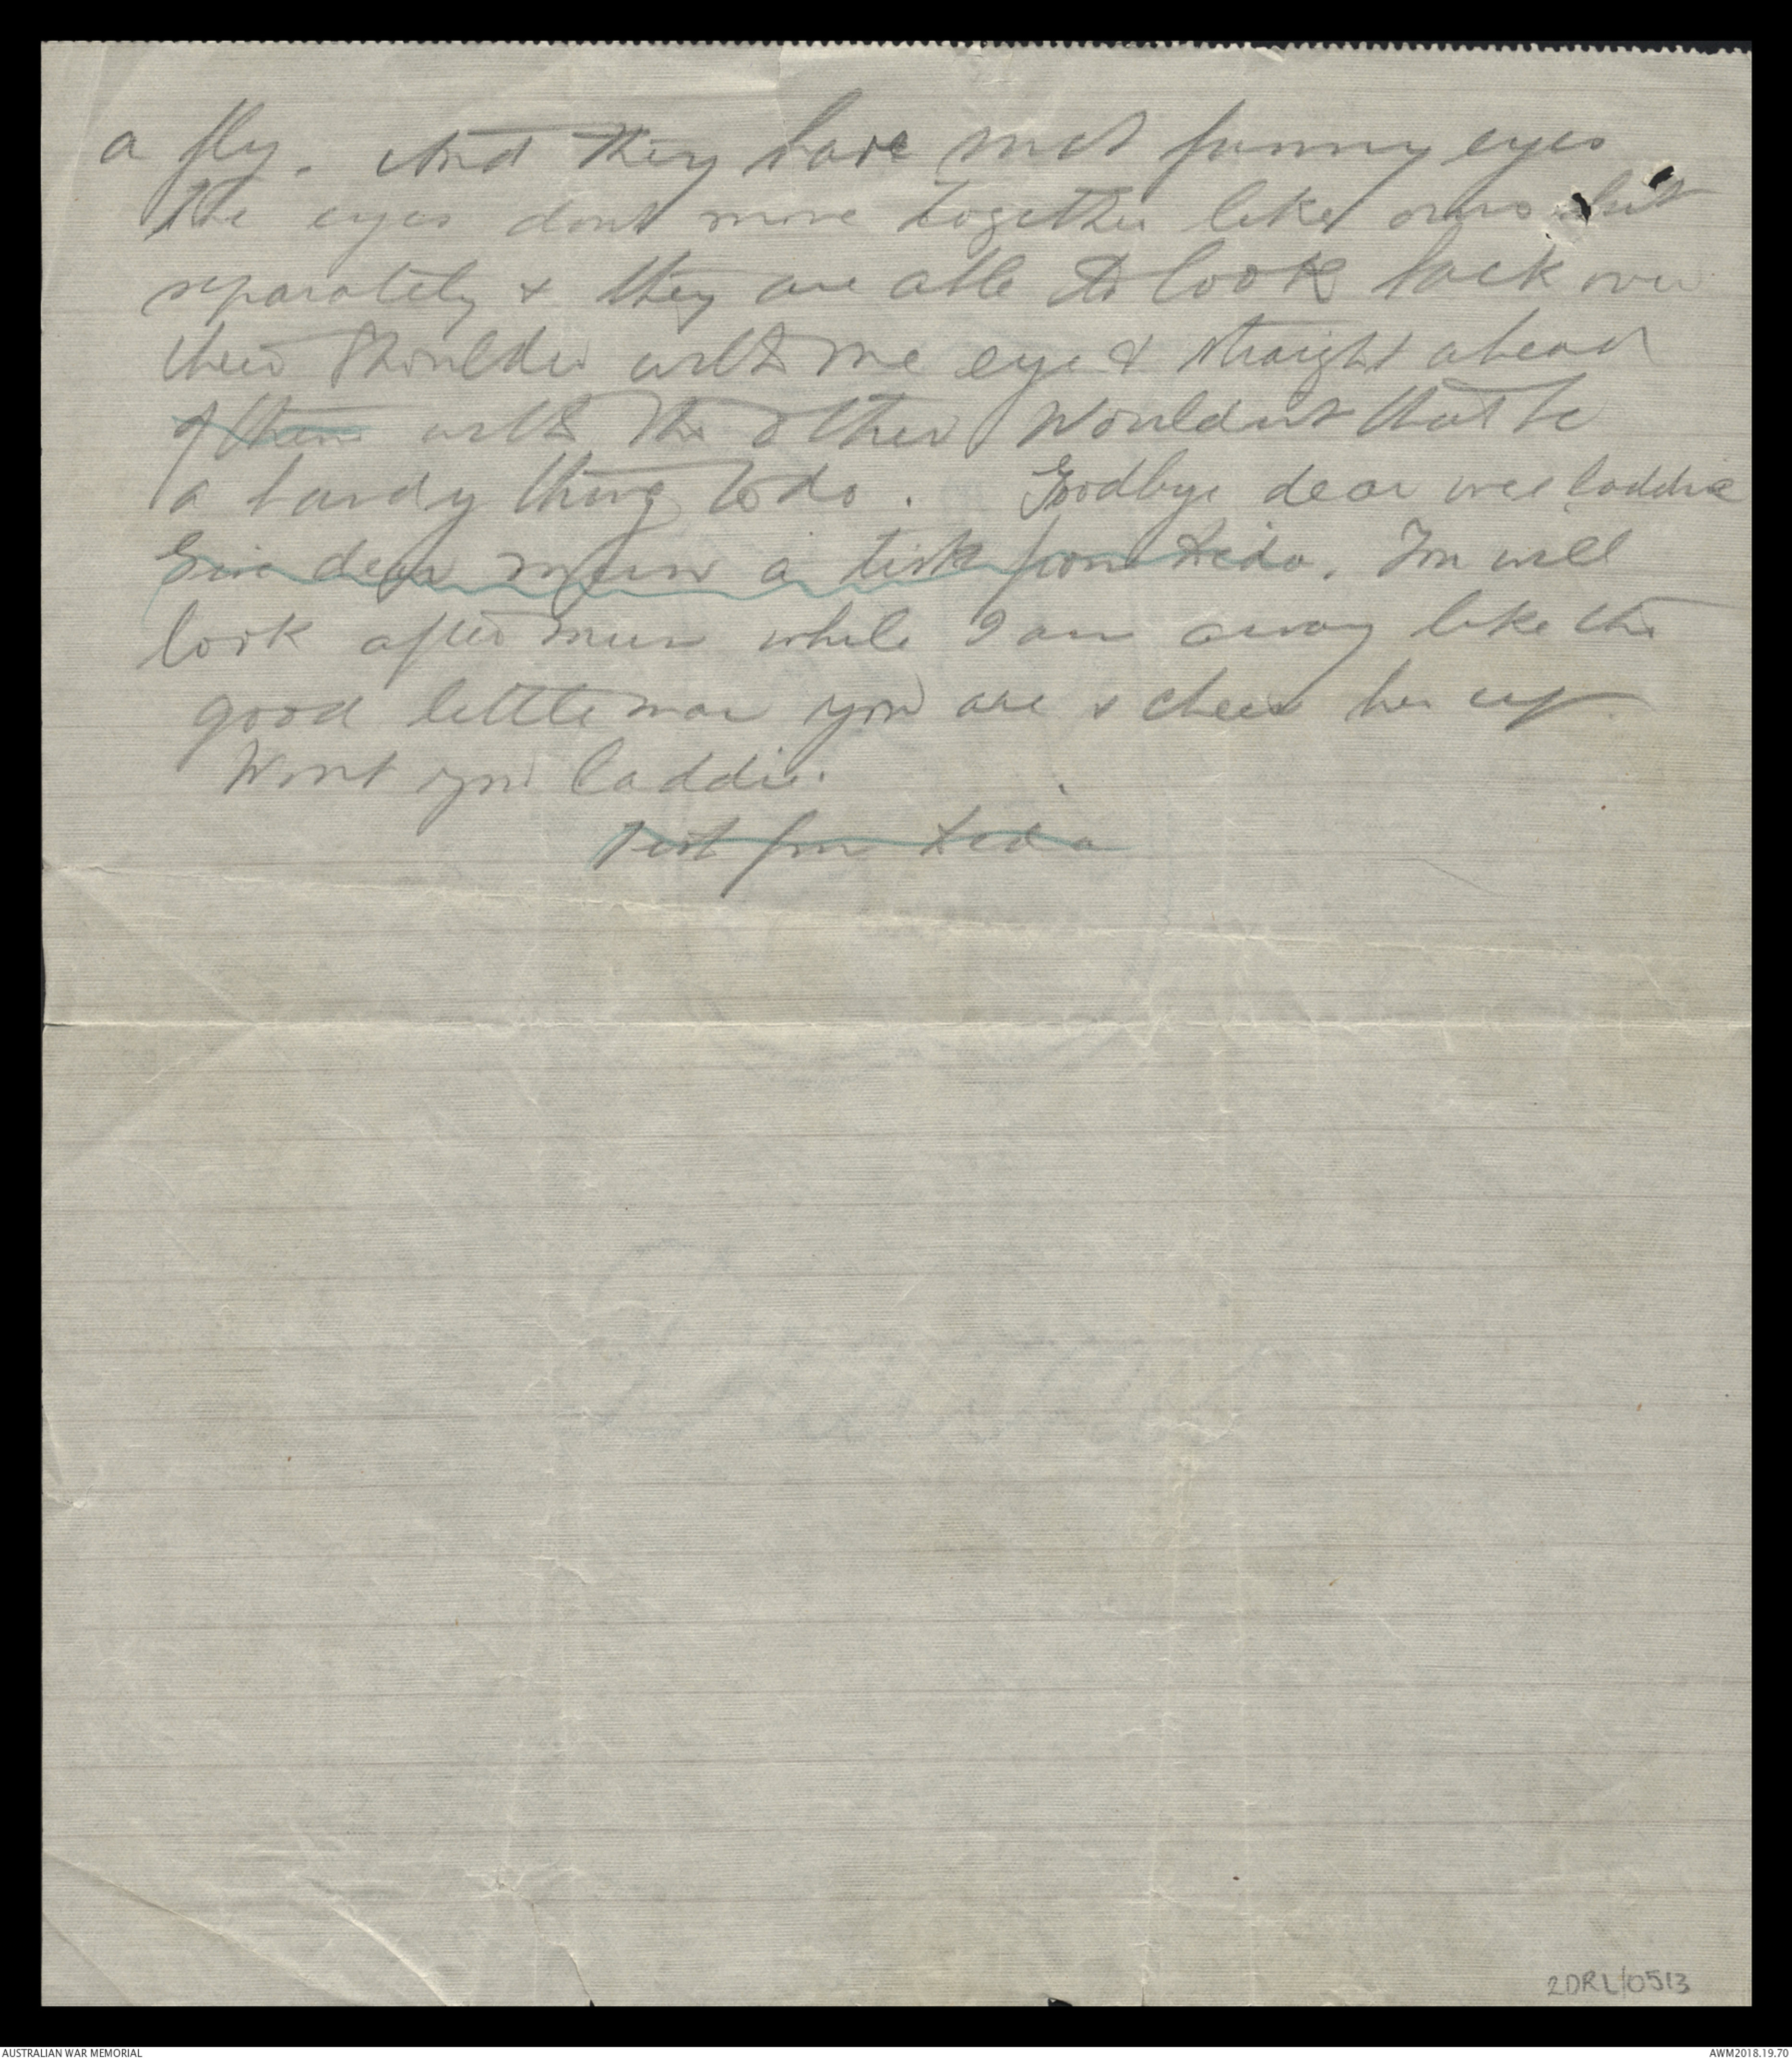 a fly. And they have such funny eyes
The eyes dont move together like ours but
separately & they are able to look back over
their shoulder with one eye & straight ahead
of them with the other Wouldnt that be
a handy thing to do. Goodbye dear wee laddie
Give dear mum a tisk from Dedo. You will
look after mum while I am away like the
good little man you are & cheer her up
Wont you laddie.
Tisk from Deda
2DRL/0513
AUSTRALIAN WAR MEMORIAL
AWM2018.19.70